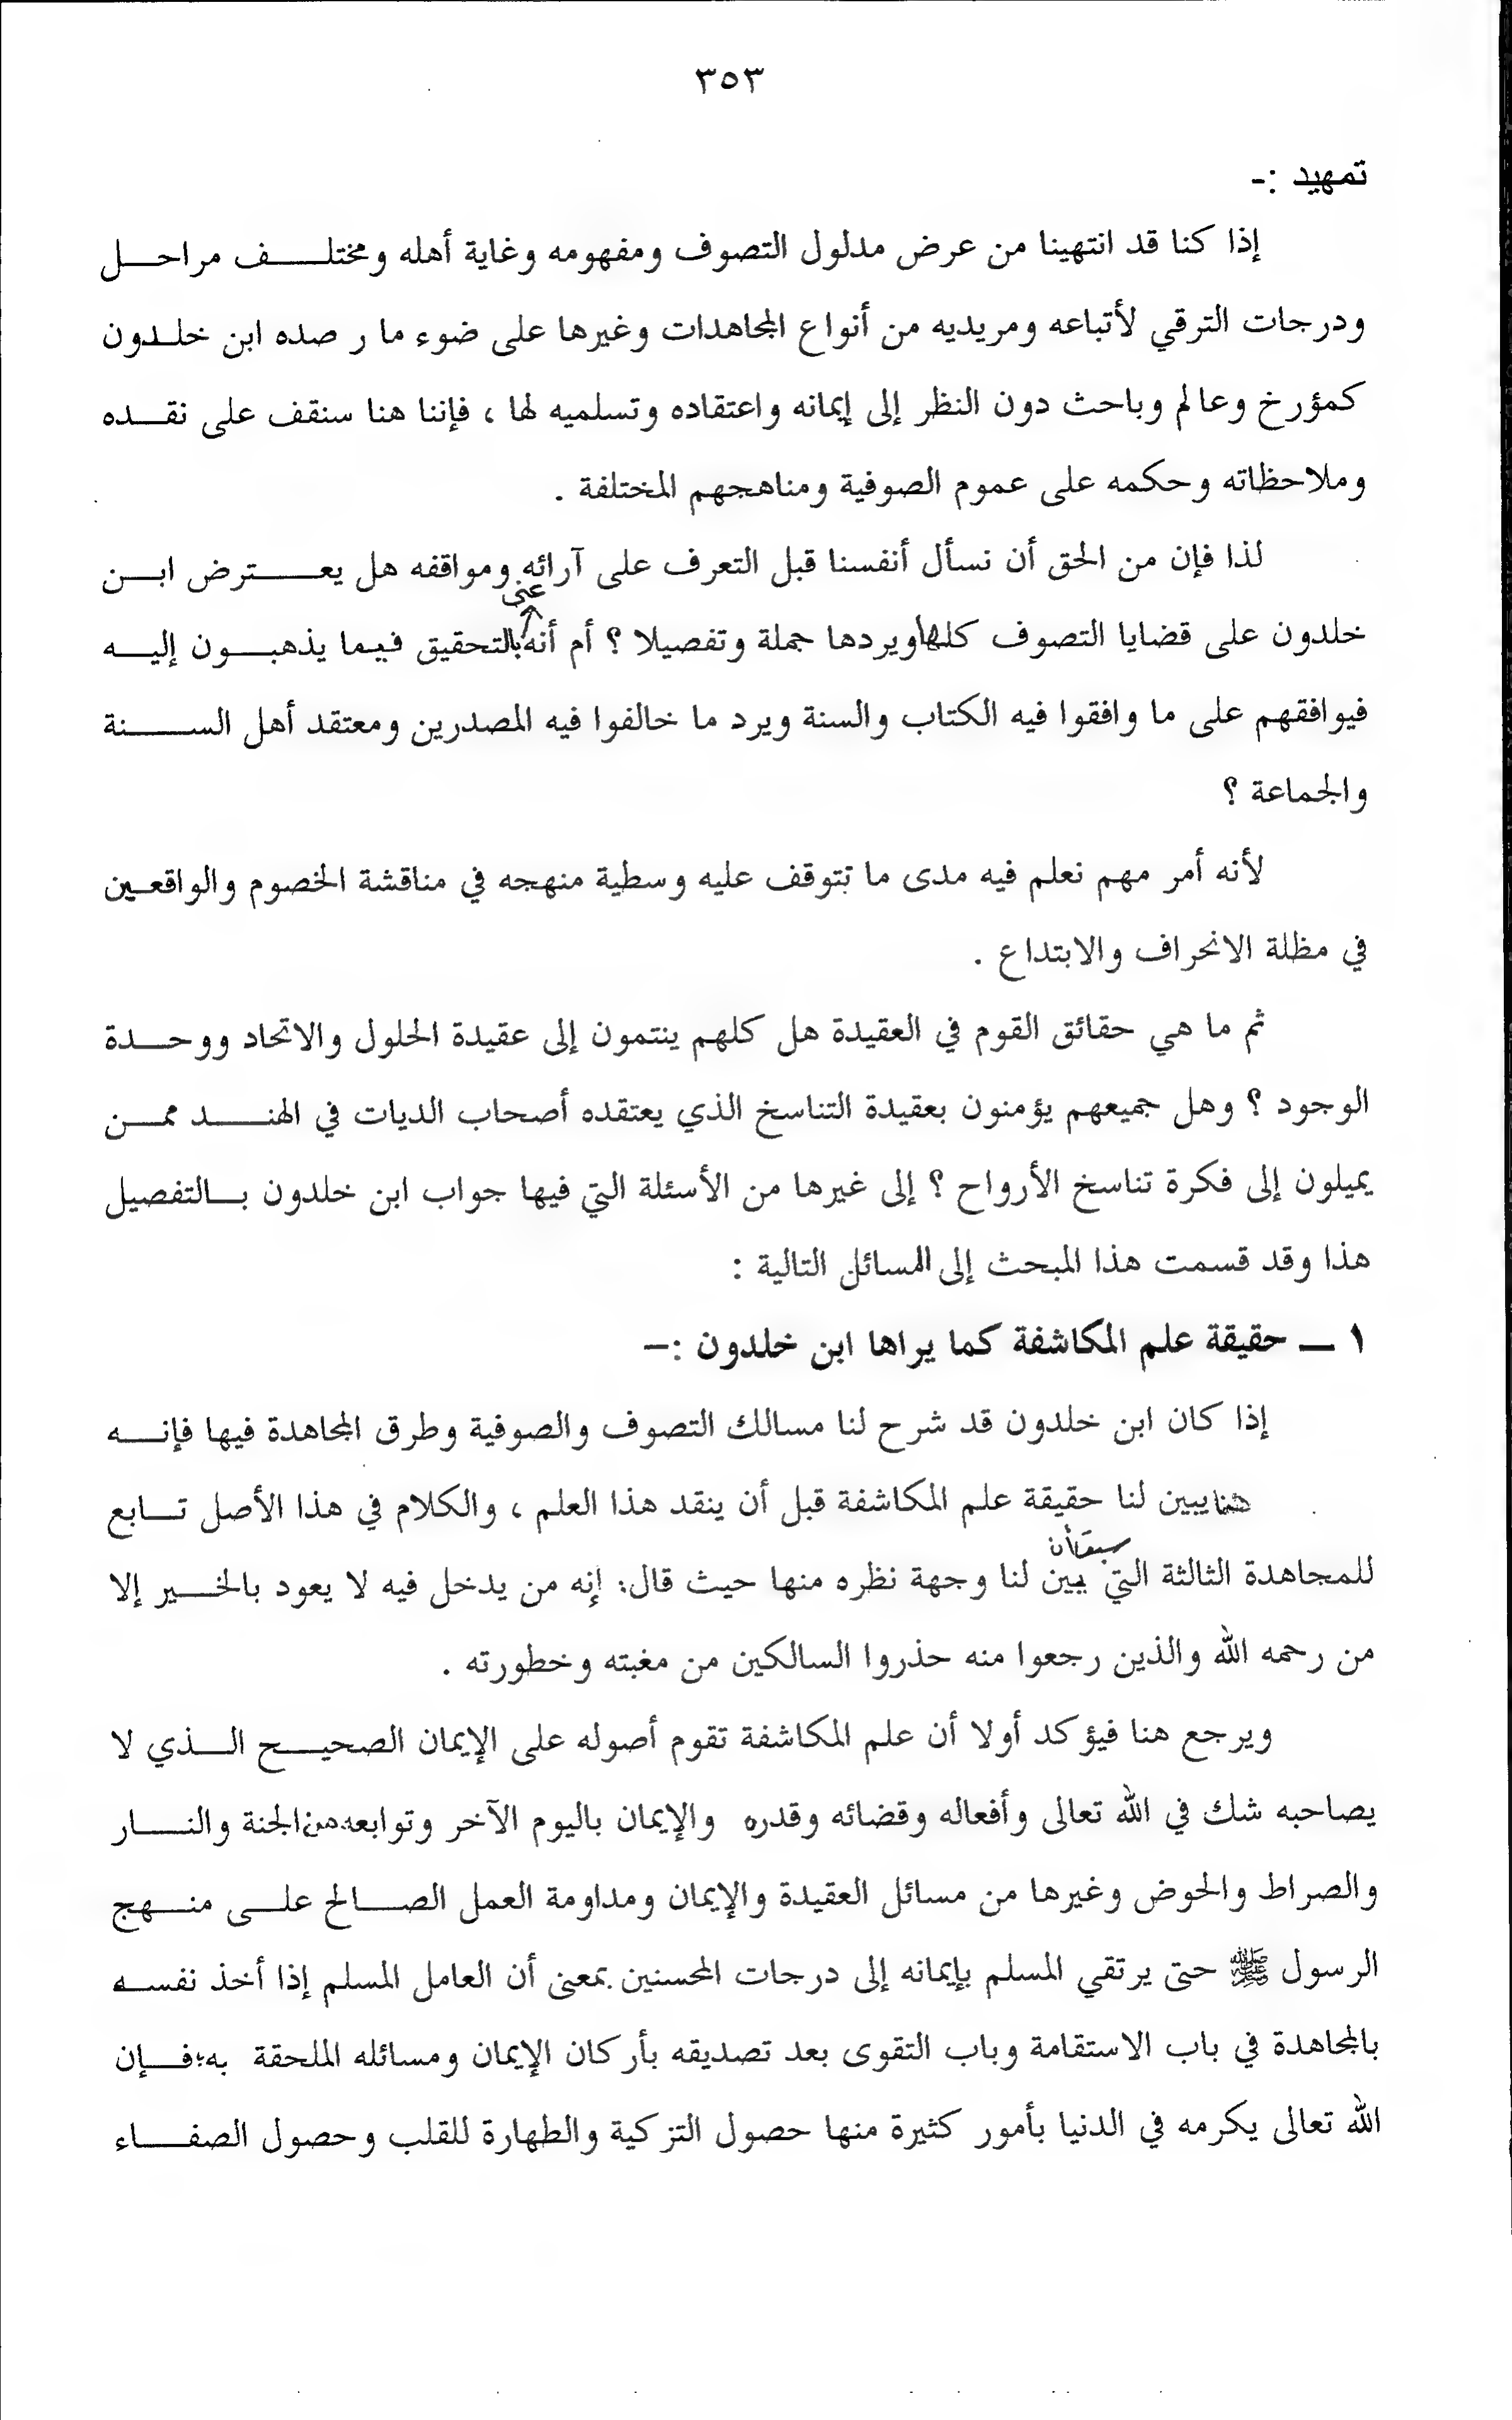 ٣٥٣
تمهيد :-
إذا كنا قد انتهينا من عرض مدلول التصوف ومفهومه وغاية أهله ومختلف مراحل
ودرجات الترقي لأتباعه ومريديه من أنواع المجاهدات وغيرها على ضوء ما ر صده ابن خلدون
كمؤرخ وعالم وباحث دون النظر إلى إيمانه واعتقاده وتسلميه لها ، فإننا هنا سنقف على نقده
وملاحظاته وحكمه على عموم الصوفية ومناهجهم المختلفة .
لذا فإن من الحق أن نسأل أنفسنا قبل التعرف على آرائه ومواقفه هل يعترض ابن
عني
خلدون على قضايا التصوف كلها أو يردها جملة وتفصيلا ؟ أم أنه بالتحقيق فيما يذهبون إليه
فيوافقهم على ما وافقوا فيه الكتاب والسنة ويرد ما خالفوا فيه المصدرين ومعتقد أهل السنة
والجماعة ؟
لأنه أمر مهم نعلم فيه مدى ما تتوقف عليه وسطية منهجه في مناقشة الخصوم والواقعين
في مظلة الانحراف والابتداع .
ثم ما هي حقائق القوم في العقيدة هل كلهم ينتمون إلى عقيدة الحلول والاتحاد ووحدة
الوجود ؟ وهل جميعهم يؤمنون بعقيدة التناسخ الذي يعتقده أصحاب الديات في الهند ممن
يميلون إلى فكرة تناسخ الأرواح ؟ إلى غيرها من الأسئلة التي فيها جواب ابن خلدون بالتفصيل
هذا وقد قسمت هذا المبحث إلى المسائل التالية :
١ – حقيقة علم المكاشفة كما يراها ابن خلدون :–
إذا كان ابن خلدون قد شرح لنا مسالك التصوف والصوفية وطرق المجاهدة فيها فإنه
هنا يبين لنا حقيقة علم المكاشفة قبل أن ينقد هذا العلم ، والكلام في هذا الأصل تابع
سبق أن
للمجاهدة الثالثة التي بين لنا وجهة نظره منها حيث قال: إنه من يدخل فيه لا يعود بالخير إلا
من رحمه الله والذين رجعوا منه حذروا السالكين من مغبته وخطورته .
ويرجع هنا فيؤكد أولا أن علم المكاشفة تقوم أصوله على الإيمان الصحيح الذي لا
يصاحبه شك في الله تعالى وأفعاله وقضائه وقدره والإيمان باليوم الآخر وتوابعه من الجنة والنار
والصراط والحوض وغيرها من مسائل العقيدة والإيمان ومداومة العمل الصالح على منهج
الرسول ﷺ حتى يرتقي المسلم بإيمانه إلى درجات المحسنين بمعنى أن العامل المسلم إذا أخذ نفسه
بالمجاهدة في باب الاستقامة وباب التقوى بعد تصديقه بأركان الإيمان ومسائله الملحقة به؛ فإن
الله تعالى يكرمه في الدنيا بأمور كثيرة منها حصول التزكية والطهارة للقلب وحصول الصفاء